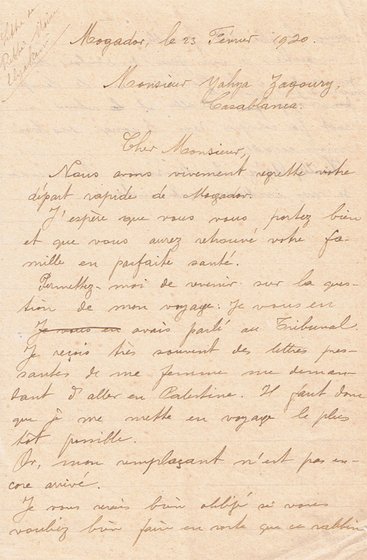 Lettre du
Rabbin
Mogador, le 23 Février 1920.
Monsieur Yahya Zagoury,
Casablanca.
Cher Monsieur,
Nous avons vivement regretté votre
départ rapide de Mogador.
J'espère que vous vous portez bien
et que vous aurez retrouvé votre fa-
mille en parfaite santé.
Permettez-moi de revenir sur la ques-
tion de mon voyage. Je vous en
Je vous en avais parlé au Tribunal.
Je reçois très souvent des lettres pres-
santes de ma femme me deman-
dant d'aller en Palestine. Il faut donc
que je me mette en voyage le plus
tôt possible.
Or, mon remplaçant n'est pas en-
core arrivé.
Je vous serais bien obligé si vous
vouliez bien faire en sorte que ce rabbin